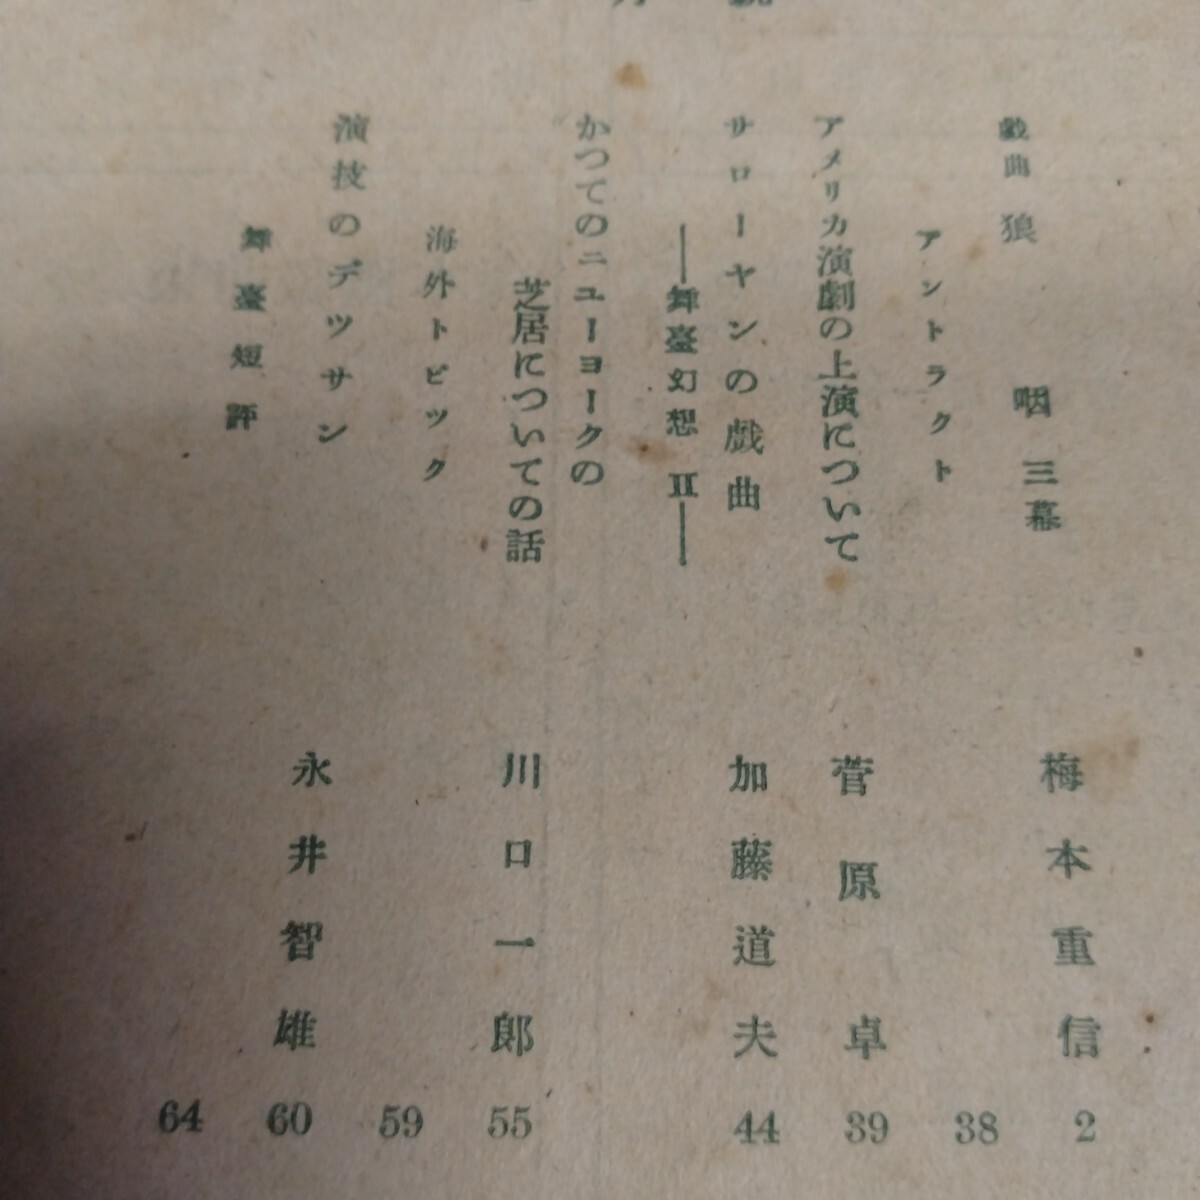 戯曲 狼 咽 三幕 梅本重信 2
アントラクト 38
アメリカ演劇の上演について 菅原卓 39
サローヤンの戯曲 加藤道夫 44
――舞臺幻想 II――
かつてのニユーヨークの
芝居についての話 川口一郎 55
海外トピツク 59
演技のデツサン 永井智雄 60
舞臺短評 64